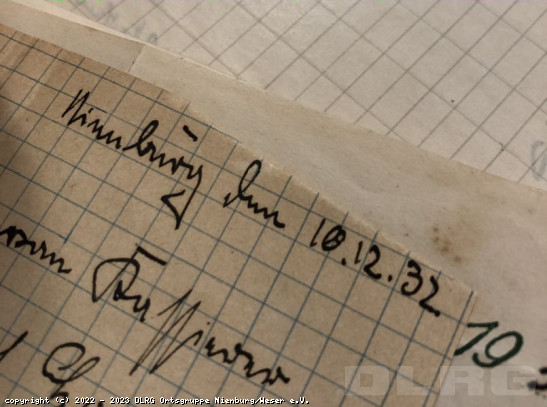 Nienburg den 10.12.32
Kassierer
19
DLRG
copyright (c) 2022 - 2023 DLRG Ortsgruppe Nienburg/Weser e.V.